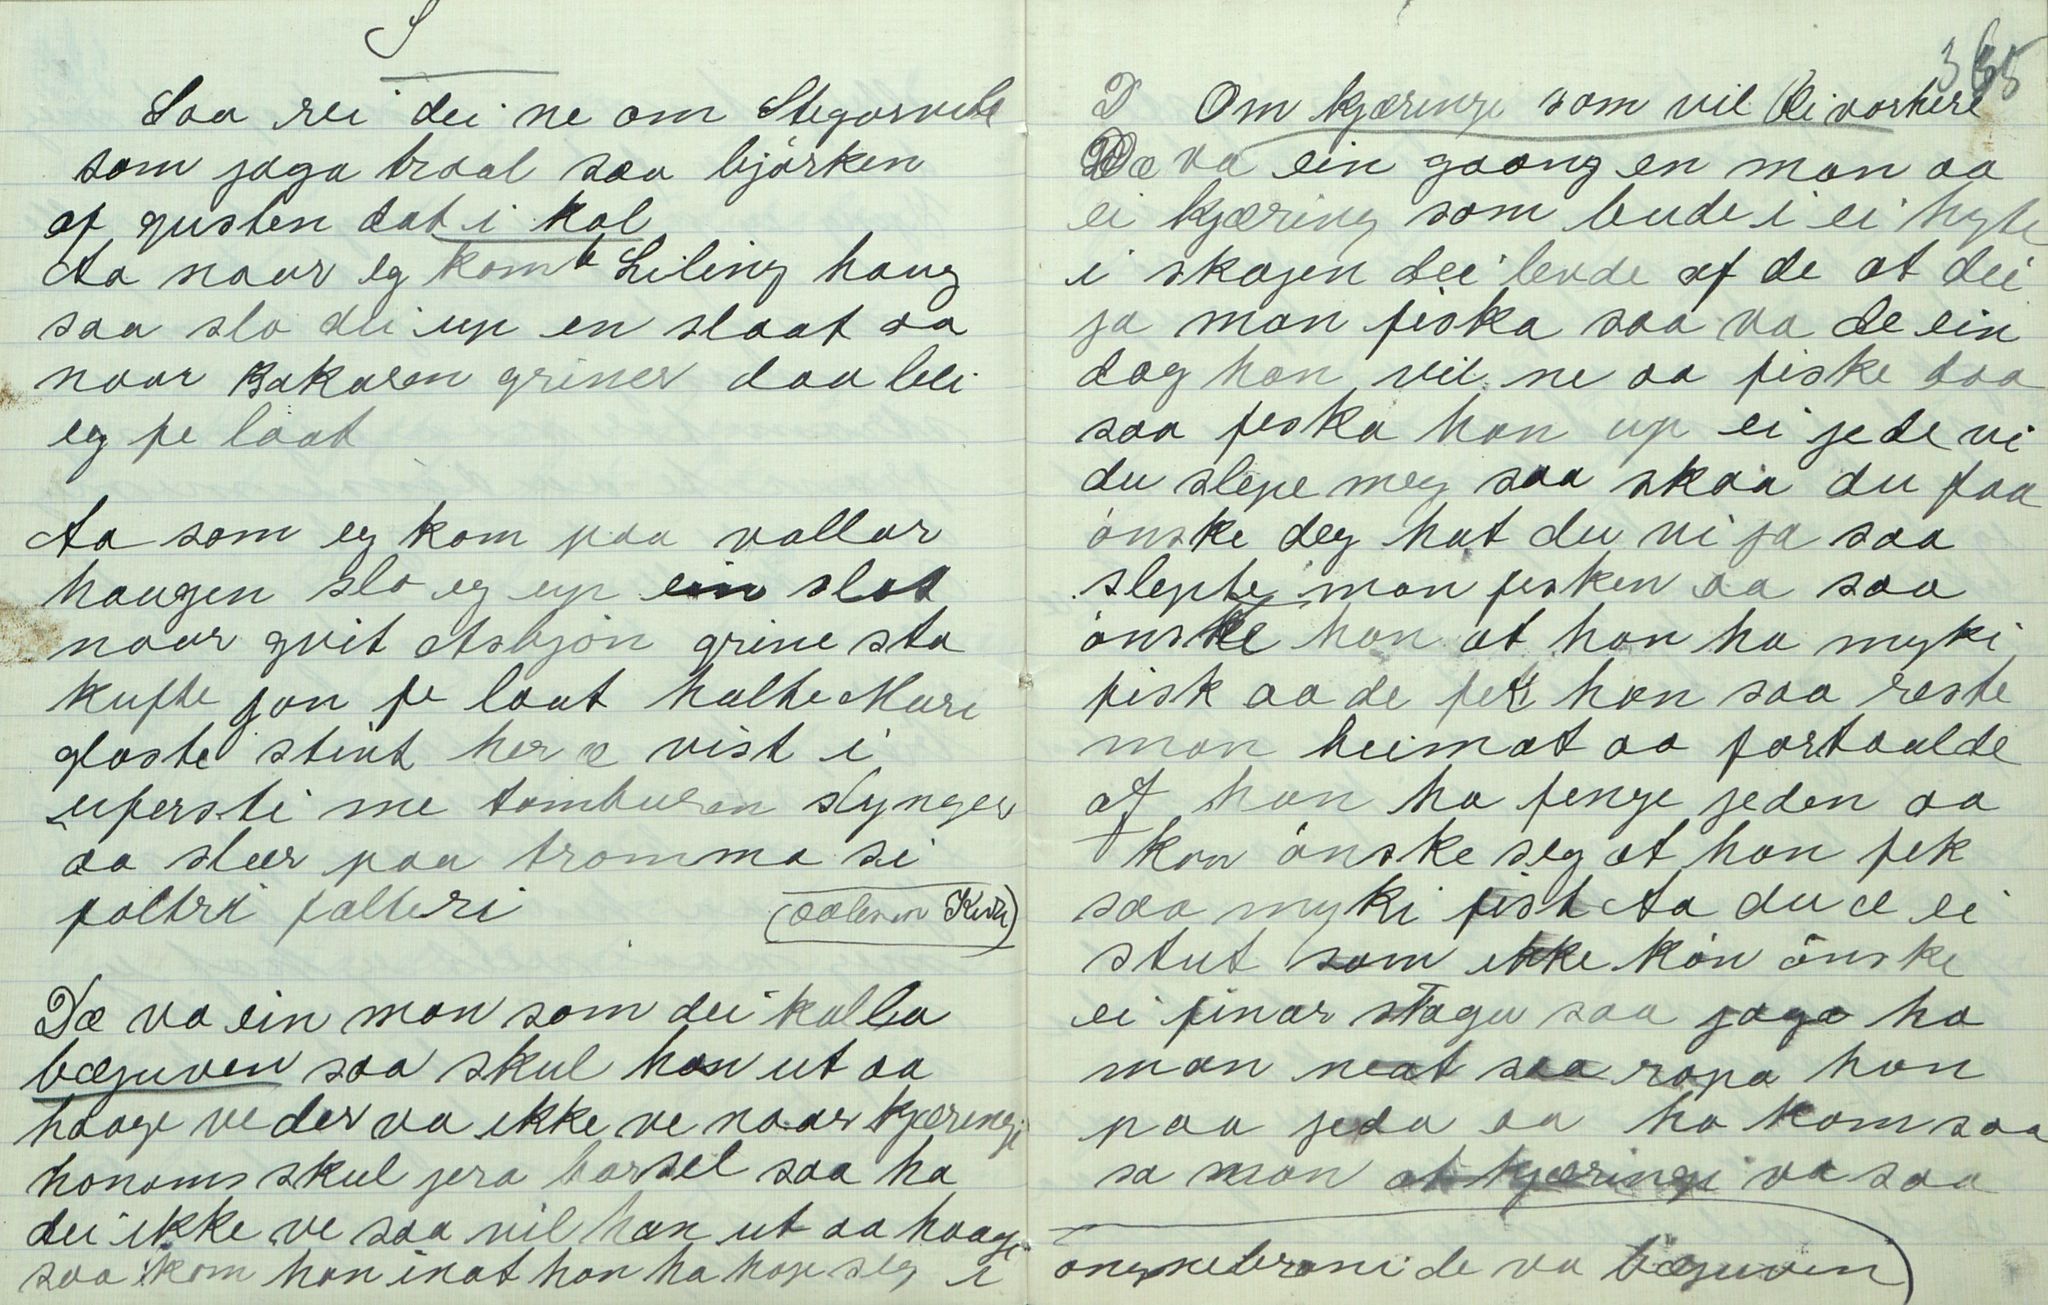 S
Saa rei dei ne om Stegarvele
som jaga traal saa bjørken
af gusten dat i kol
Aa naar eg kom t Liling haug
saa slo dei up en slaat aa
naar Bakaren griner daa blei
eg fe laat
Aa som eg kom paa vallar
haugen slo eg up ein slot
naar gvit Asbjøn grine sta
kufte jon fe laat halte Mari
gloste stint her æ vist i
ufersti me tamburen slynger
aa slær paa tromma si
faltri falteri
(aalmen Kivle)
Dæ va ein man som dei kalla
bæguven saa skul han ut aa
haage ve der va ikke ve naar kjæringi
honoms skul jera barsel saa ha
dei ikke ve saa vil han ut aa haage
saa kom han inat han ha hage seg i
365
D Om kjæringi som vil bli vorhere
Dæ va ein gaang en man aa
ei kjæring som bude i ei hyte
i skagen dei levde af de at dei
ja man fiska saa va de ein
dag han vil ne aa fiske daa
saa feska han up ei jede vi
du slepe meg saa skaa du faa
ønske deg hat du vi ja saa
slepte man fesken aa saa
ønske han at han ha myki
fisk aa de fek han saa reste
man heimat aa fortaalde
at han ha fenge jeden aa
kon ønske seg at han fek
saa myki fisk Aa du æ ei
stut som ikke kon ønske
ei finar stagu saa jaga ha
man neat saa ropa han
paa jeda aa ha kom saa
sa man at kjæringi va saa
ongnebrani de va bæguven)